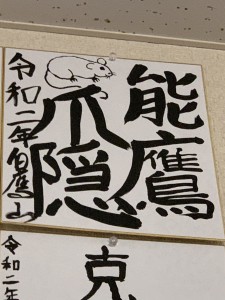 能鷹
爪隠
令和二年白鷹山
克
令和二年